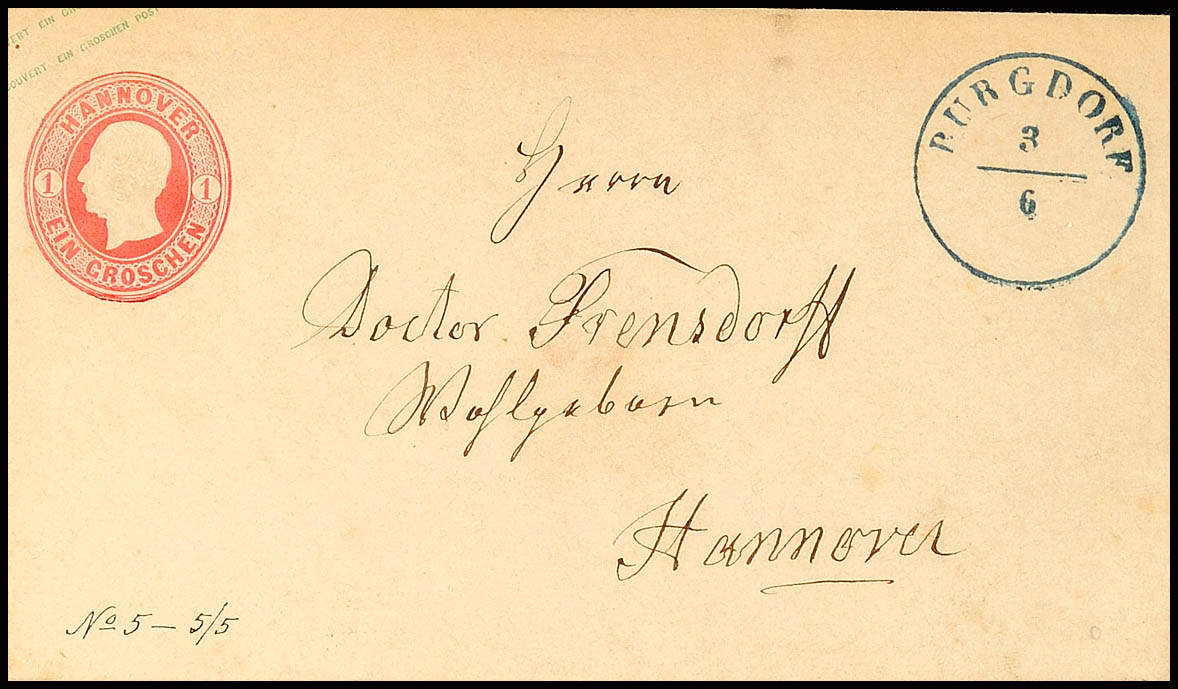 VERT EIN GR
COUVERT EIN GROSCHEN POST
HANNOVER
1 1
EIN GROSCHEN
BURGDORF
3
6
Herrn
Doctor Frensdorff
Wohlgeborn
Hannover
No 5 – 5/5